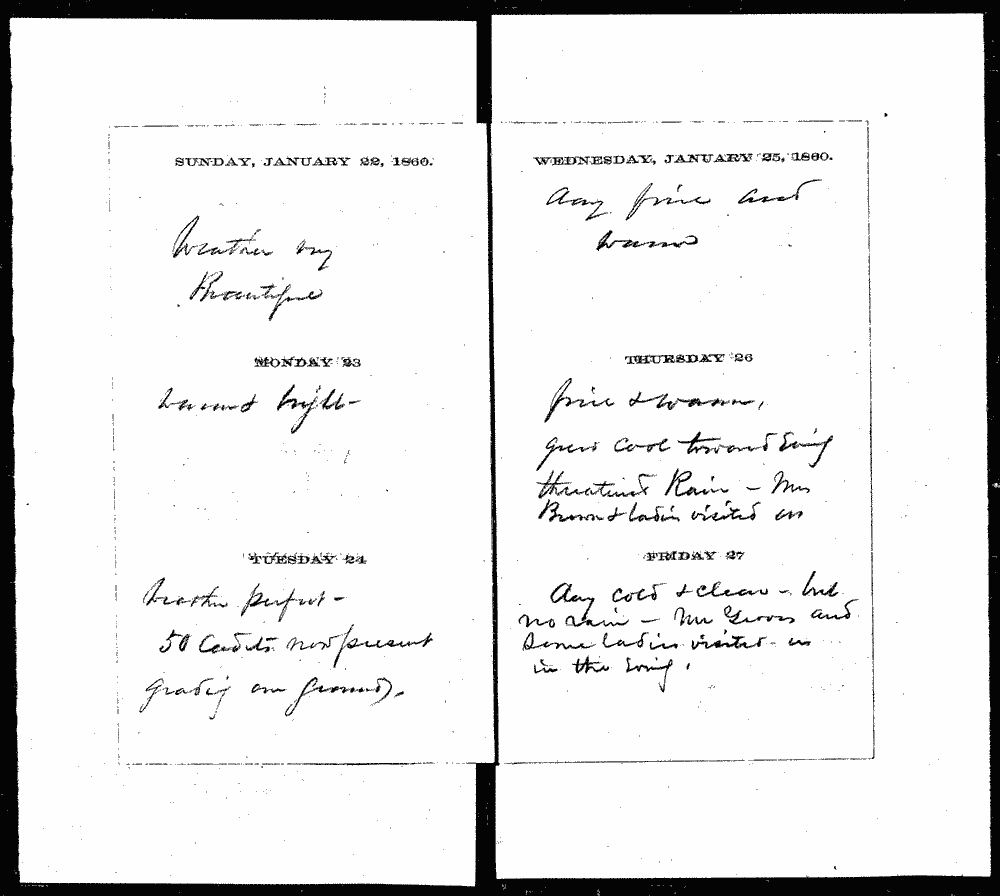 SUNDAY, JANUARY 22, 1860.
Weather very
Beautiful
MONDAY 23
warm & bright-
TUESDAY 24
Weather perfect -
50 Cadets now present
grading our grounds.
WEDNESDAY, JANUARY 25, 1860.
day fine and
warm
THURSDAY 26
fine & warm,
grew cool toward Evng
threatened Rain - Mrs
Brown & ladies visited us
FRIDAY 27
day cold & clear - but
no rain - Mr and
Some ladies visited us
in the Evng.